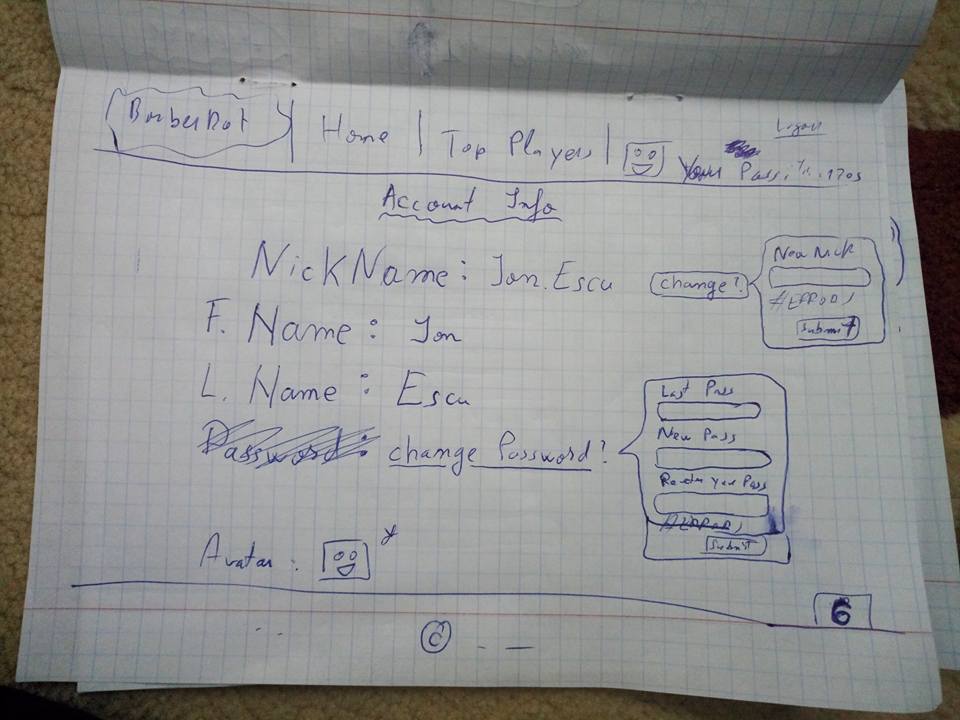 BomberBot | Home | Top Players |
Logout
Your Pass:
Account Info
NickName: Ion.Escu
change?
New Nick
#ERRORS
Submit
F. Name: Ion
L. Name: Escu
Password: change Password?
Last Pass
New Pass
your Pass
#ERRORS
Submit
Avatar:
6
©